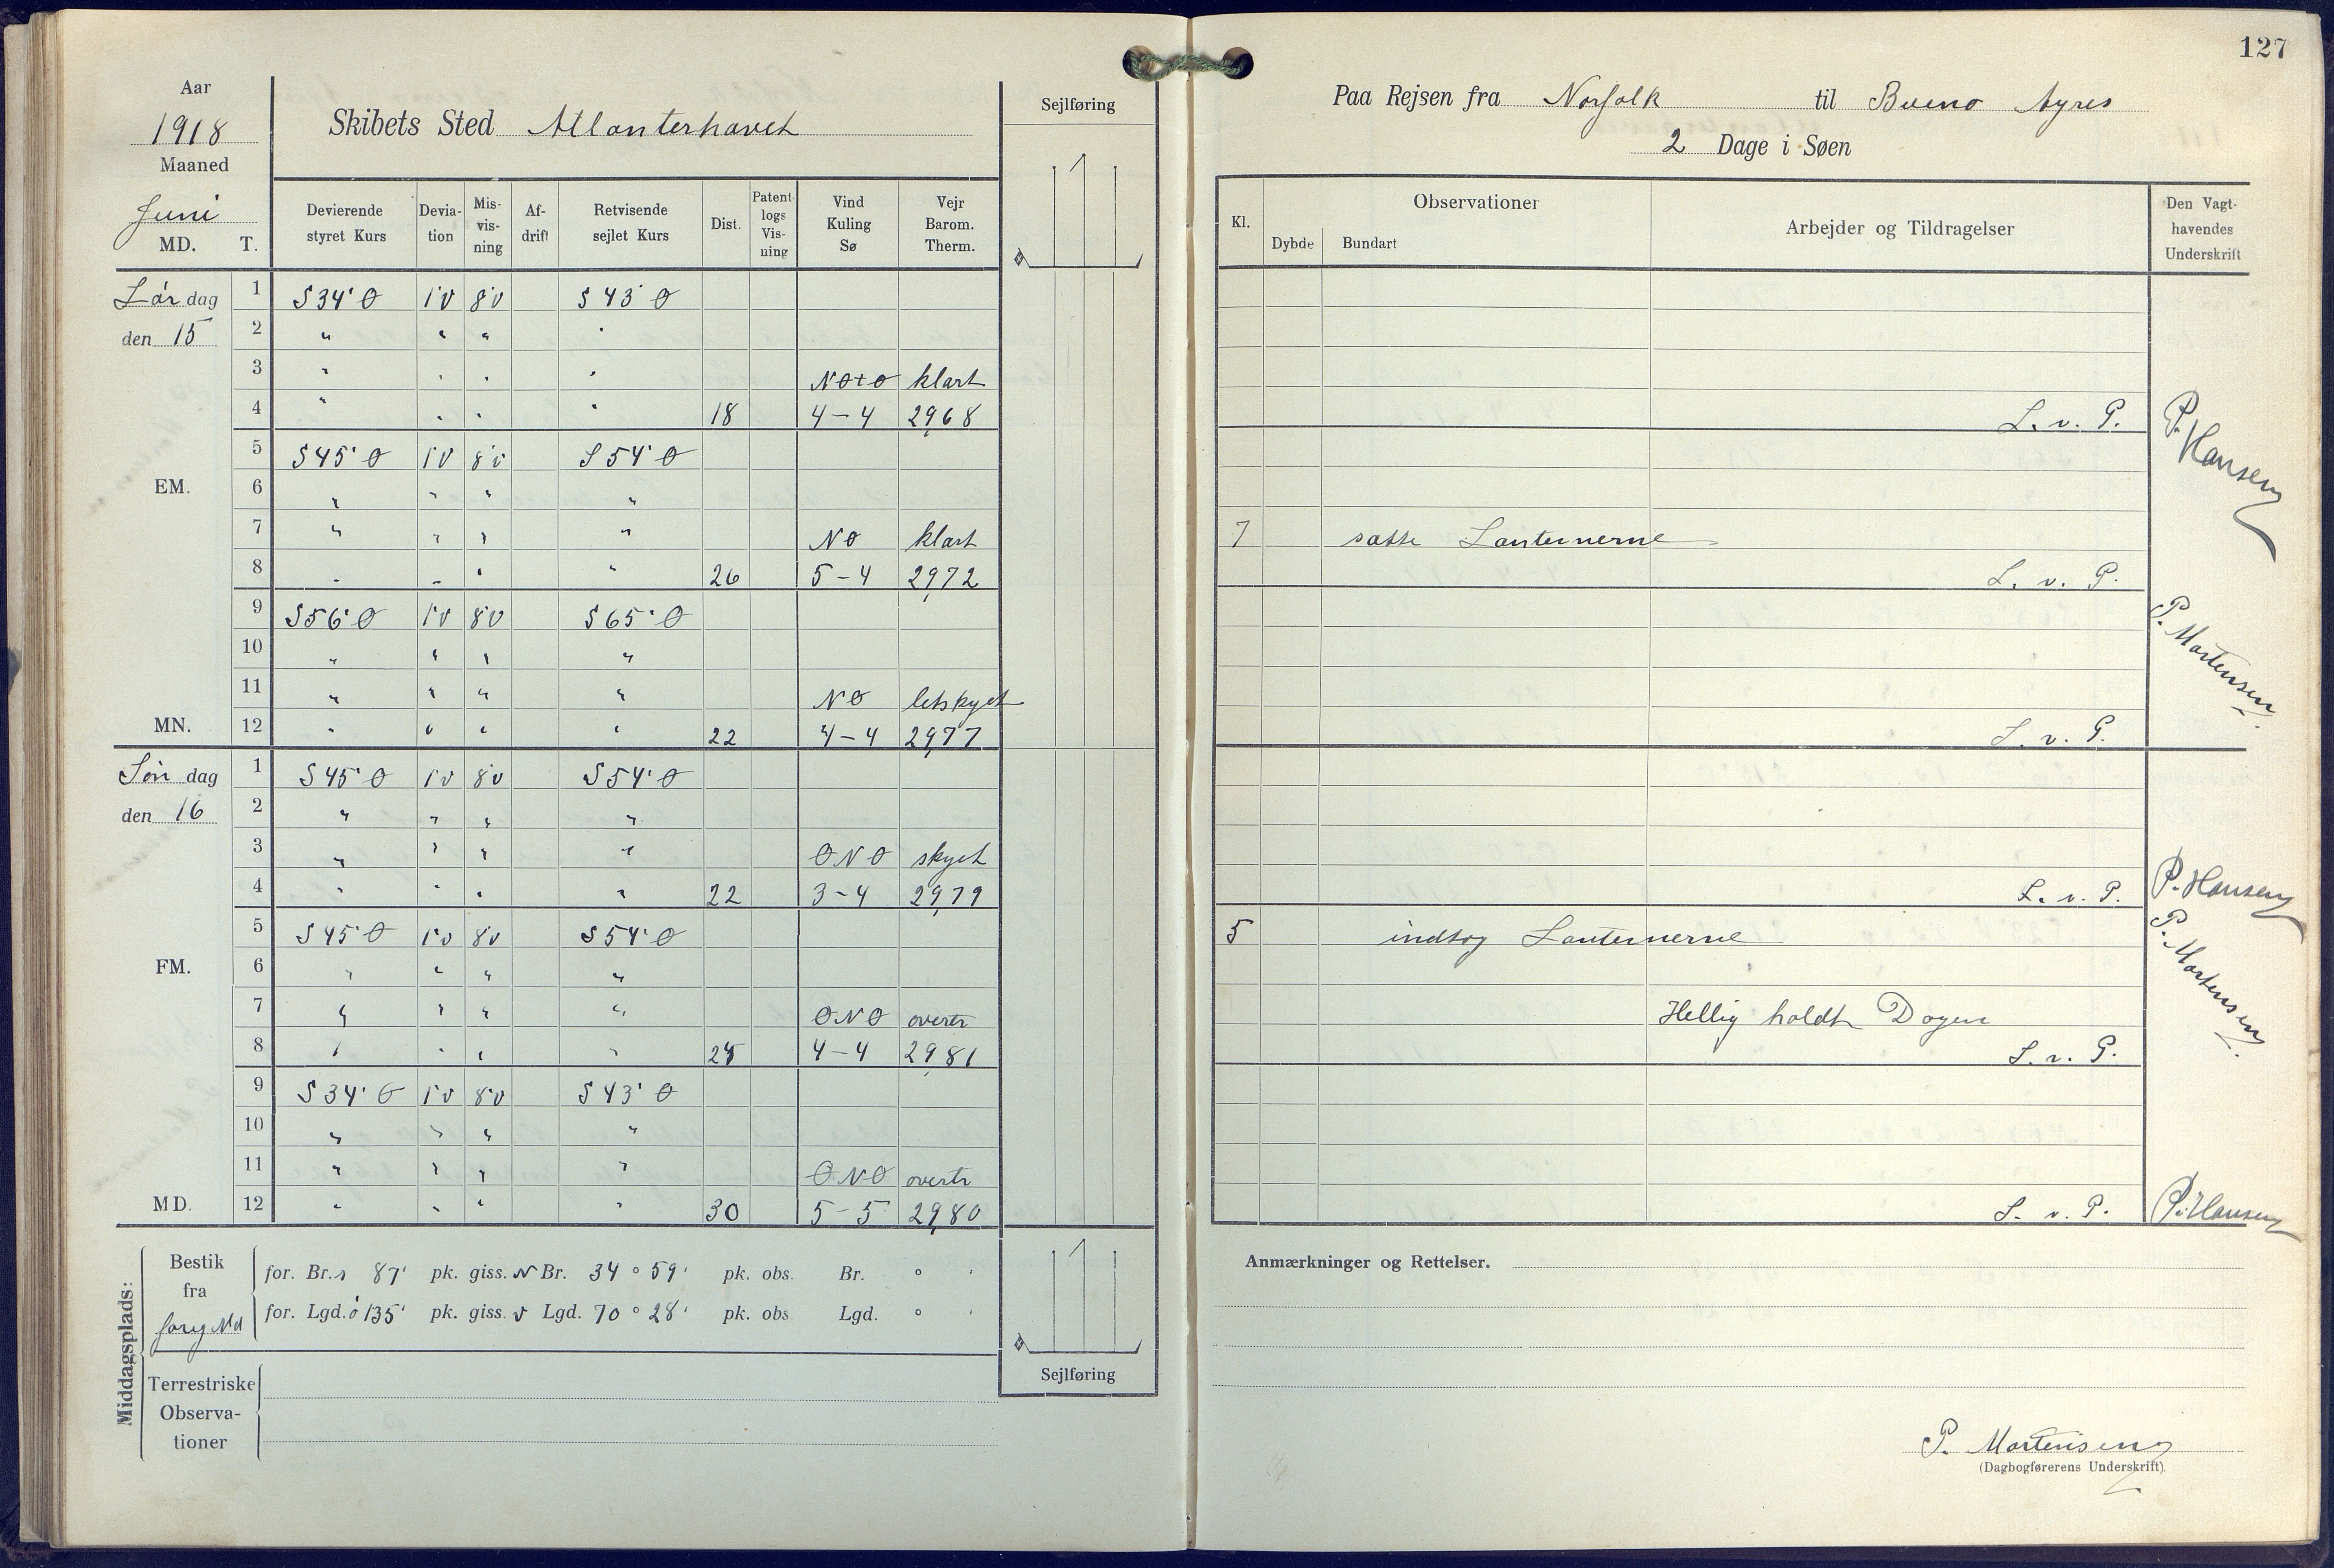 127
Aar
1918
Maaned
Juni
MD. T.
Skibets Sted Atlanterhavet
Sejlføring
Paa Rejsen fra Norfolk til Bueno Ayres
2 Dage i Søen
Devierende styret Kurs | Devia-tion | Mis-vis-ning | Af-drift | Retvisende sejlet Kurs | Dist. | Patent-logs Vis-ning | Vind Kuling Sø | Vejr Barom. Therm.
Kl. | Observationer | Dybde | Bundart | Arbejder og Tildragelser | Den Vagt-havendes Underskrift
Lør dag 1 S 34° O 1°V 8°V S 43° O
den 15 2 " " " "
3 " " " " NOtO klart
4 " " " " 18 4-4 29,68 L. v. P. P. Hansen
5 S 45° O 1°V 8°V S 54° O
EM. 6 " " " "
7 " " " " NO klart 7 satte Lanternerne
8 " " " " 26 5-4 29,72 L. v. P. P. Mortensen
9 S 56° O 1°V 8°V S 65° O
10 " " " "
11 " " " " NO letskyet
MN. 12 " " " " 22 4-4 29,77 L. v. P.
Søn dag 1 S 45° O 1°V 8°V S 54° O
den 16 2 " " " "
3 " " " " ONO skyet
4 " " " " 22 3-4 29,79 L. v. P. P. Hansen
5 S 45° O 1°V 8°V S 54° O 5 indtog Lanternerne P. Mortensen
FM. 6 " " " "
7 " " " " ONO overtr Hellig holdt Dagen
8 " " " " 4-4 29,81 L. v. P.
9 S 34° O 1°V 8°V S 43° O
10 " " " "
11 " " " " ONO overtr
MD. 12 " " " " 30 5-5 29,80 L. v. P. P. Hansen
Middagsplads:
Bestik fra forrig Md
for. Br. s 87' pk. giss. N Br. 34° 59' pk. obs. Br. ° '
for. Lgd. ö 135' pk. giss. V Lgd. 70° 28' pk. obs. Lgd. ° '
Sejlføring
Terrestriske Observa-tioner
Anmærkninger og Rettelser.
P. Mortensen
(Dagbogførerens Underskrift).